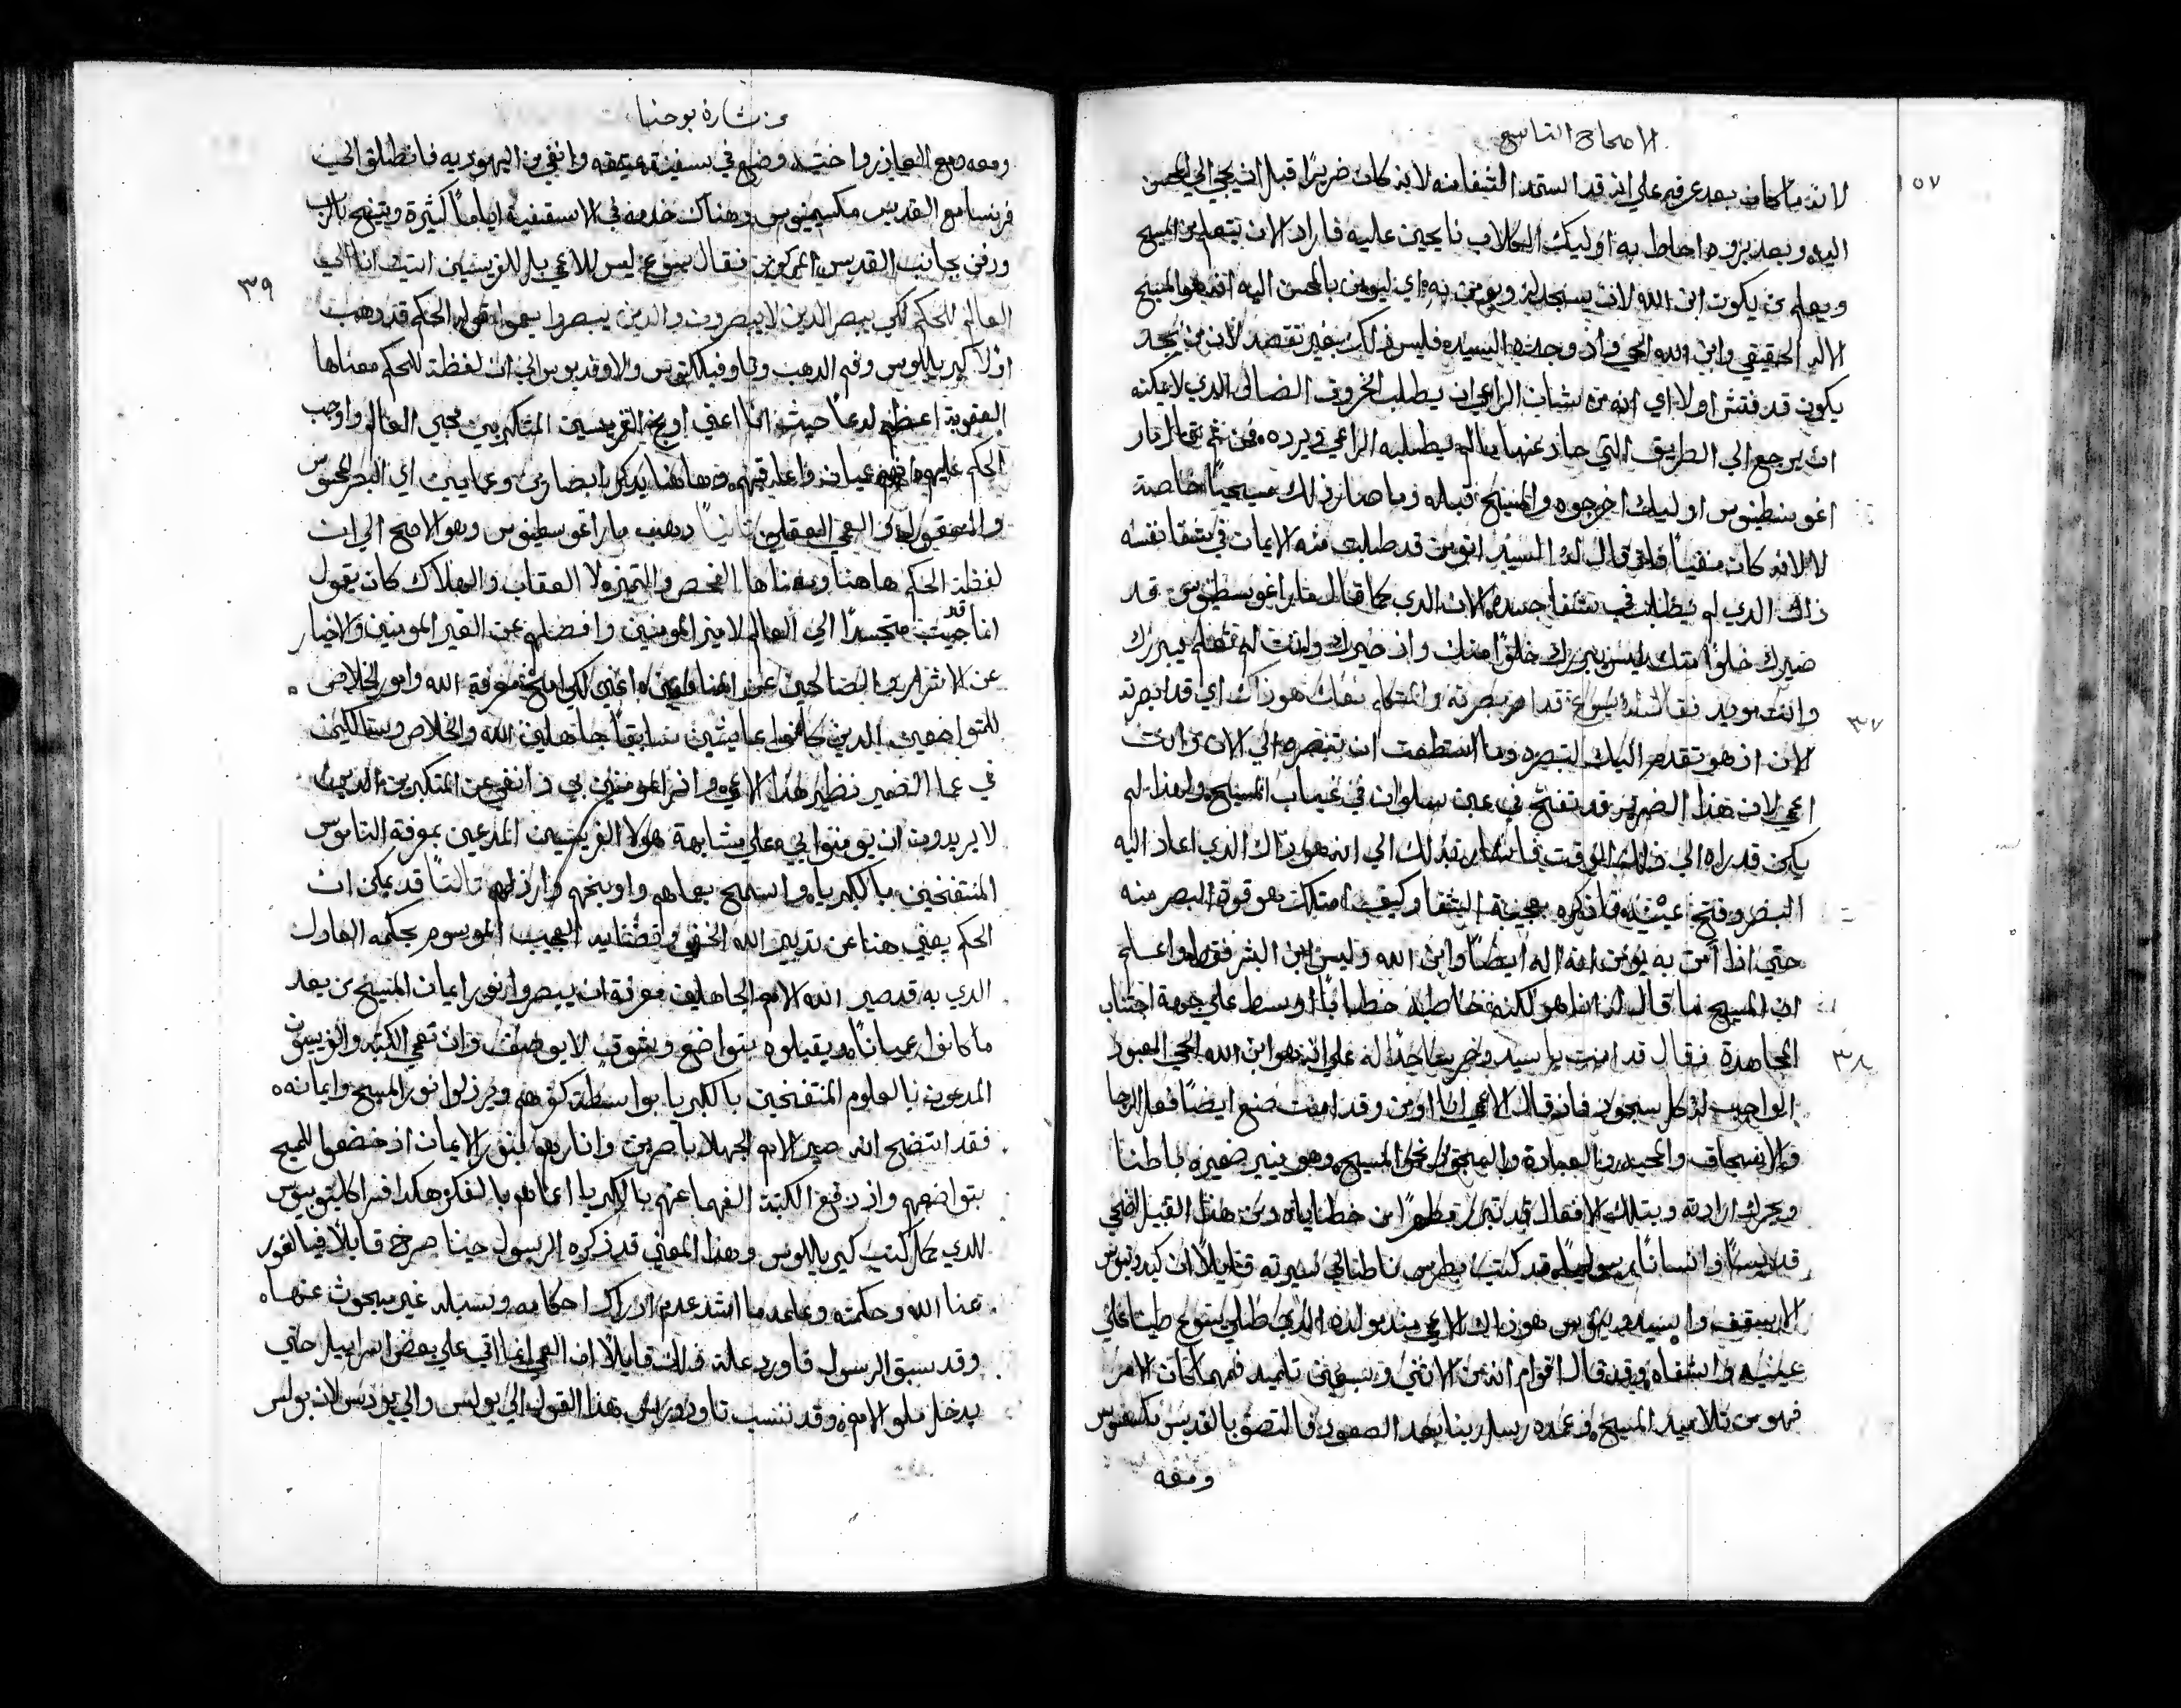 الاصحاح التاسع
١٥٧
لانه ما كان بعد عرفه علي انه قد استمد الشفا منه لانه كان ضريرًا قبل ان يجي الي المحسن
اليه وبعد بروه احاط به اوليك الكلاب نابحين عليه فاراد الان يتعلم من المسيح
ويعلم من يكون ابن الله لان يسجد له ويومن به اي ليومن بالمحسن اليه انه هو المسيح
الاله الحقيقي وابن الله الحي واذ وجده السيد فليس ذلك بغير تقصد لان من يجد
يكون قد فتش اولا اي انه من شان الراعي ان يطلب الخروف الضال الذي لا يمكنه
ان يرجع الي الطريق التي حاد عنها ما لم يطلبه الراعي ويرده فمن ثم قال مار
اغوسطينوس اوليك اخرجوه والمسيح قبله وما صار ذلك مسيحيًا خاصة
الا لانه كان منفيًا فلما قال له السيد اتومن قد طلب منه الايمان في شفا نفسه
ذاك الذي لم يطلب في شفا جسده لان الذي كما قال مار اغوسطينوس قد
صيرك خلوًا منك ليس يبررك خلوًا منك واذ صيرك وانت لم تعلم يبررك
وانت مريد فقال له يسوع قد ابصرته والمتكلم معك هو ذاك اي قد ابصرته ٣٧
الان اذ هو تقدم اليك لتبصره وما استطعت ان تبصره الي الان وانت
اعمي لان هذا الضرير قد تفتح في عين سلوان في غياب المسيح ولهذا لم
يكن قد راه الي ذلك الوقت فاشار بذلك الي انه هو ذاك الذي اعاد اليه
البصر وفتح عينيه فاذكره بعجيبة الشفا وكيف امتلك هو قوة البصر منه
حتي اذا آمن به يومن انه اله ايضًا وابن الله وليس ابن البشر فقط واعلم
ان المسيح ما قال له انا هو لكنه خاطبه خطابًا اوسط علي جهة اجتناب
المجاهدة فقال قد امنت يا سيد وخر ساجدًا له علي انه هو ابن الله الحي المعبود ٣٨
الواجب له كل سجود فاذ قال الاعمي انا اومن وقد امنت صنع ايضًا فعل الرجا
والانسحاق والمحبة والعبادة والسجود نحو المسيح وهو ينير ضميره باطنا
ويحرك ارادته وبتلك الافعال قد تبرر مطهرًا من خطاياه ومن هذا القبيل اضحي
قديسًا وانسانًا رسوليًا قد كتب بطرس ناطالي سيرته قايلًا ان كيدونيوس
الاسقف وا هو ذاك الاعمي منذ مولده الذي طلي يسوع طينا علي
عينيه واشفاه وقد قال اقوام انه من الاثني وسبعين تلميذ فمهما كان الامر
فهو من تلاميذ المسيح وعمده رسل ربنا بعد الصعود فالتصق بالقديس مكسيمينوس
ومعه
من بشارة يوحنا
ومعه ومع العازر واختيه وضع في سفينة عتيقه وانفي من اليهوديه فانطلق الي
فرنسا مع القديس مكسيمينوس وهناك خدمه في الاسقفية اياما كثيرة وتنيح بالرب
ودفن بجانب القديس المذكور فقال يسوع ليس للاعمي بل للفريسيين اتيت انا الي ٣٩
العالم للحكم لكي يبصر الذين لا يبصرون والذين يبصروا يعموا قوله الحكم قد ذهب
اولا كيريللوس وفم الذهب وثاوفيلكتوس ولاونديوس الي ان لفظة للحكم معناها
العقوبة اعظم لوما حيث انا اعني اوبخ الفريسيين المتكبرين بمجي العالم واوجب
الحكم عليهم انهم عميان واعاقبهم وهاهنا يذكر ابصارين وعمايين اي البصر المحسوس
والمعقول اي العمي العقلي ثانيًا ذهب مار اغوسطينوس وهو الاصح الي ان
لفظة الحكم هاهنا ومعناها الفحص والتمييز لا العقاب والهلاك كان يقول
انا قد جيت متجسدًا الي العالم لاميز المومنين وافضلهم عن الغير المومنين والاخيار
عن الاشرار والصالحين عن المنافقين اعني لكي امنح معرفة الله وامور الخلاص
للمتواضعين الذين كانوا عايشين سابقًا جاهلين الله والخلاص وسالكين
في عما الضمير نظير هذا الاعمي واذ امنوا بي وانفي عن المتكبرين الذين
لا يريدون ان يومنوا بي علي مشابهة هولا الفريسيين المدعين بمعرفة الناموس
المنتفخين بالكبريا واسمح بعماهم واوبخهم وارذلهم ثالثًا قد يمكن ان
الحكم يعني هنا عن تدبير الله الخفي وقضايه العجيب الموسوم بحكمه العادل
الذي به قد صير الله الامم الجاهلين معرفة ان يبصروا نور ايمان المسيح من بعد
ما كانوا عميانًا ويقبلوه بتواضع وبشوق لا يوصف وان تعمي الكتبة والفريسيون
المدعون بالعلوم المنتفخين بالكبريا بواسطة كفرهم ويرذلوا نور المسيح وايمانه
فقد اتضح انه صير الامم الجهلا باصرين وانارهم بنور الايمان اذ خضعوا للمسيح
بتواضعهم واذ دفع الكتبة الفهما عنهم بالكبريا اعماهم بالفكر هكذا فسر اكليتوبيوس
الذي كمل كتب كيريللوس وهذا المعني قد ذكره الرسول حينا صرخ قايلًا فيا لغور
غنا الله وحكمته وعلمه ما اشد عدم ادراك احكامه وسبله غير مبحوث عنها
وقد سبق الرسول فاورد علة ذلك قايلًا ان العمي انما اتي علي بعض اسراييل حتي
يدخل ملو الامم وقد ننسب تاودوروس هذا القول الي بولس والي يودس لان بولس